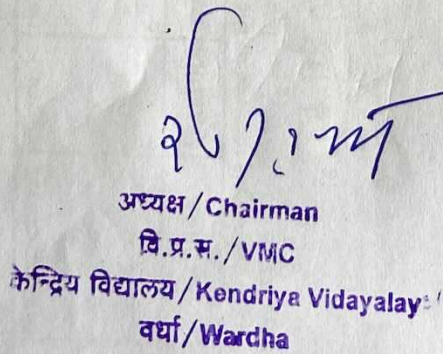 अध्यक्ष/Chairman
वि.प्र.स./VMC
केन्द्रिय विद्यालय/Kendriya Vidayalay
वर्धा/Wardha